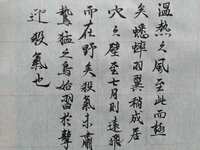 溫熱之風至此而極
矣蟋蟀羽翼稍成居
穴之壁至七月則遠飛
而在野矣殺氣未肅
鷙猛之鳥始習於擊
迎殺氣也